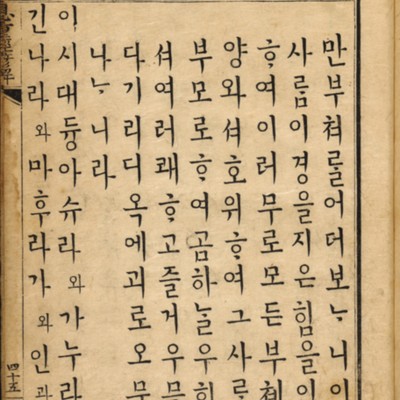 만부쳐를어더보ᄂᆞ니이
사름이경을지은힘을이
ᄒᆞ여이러무로모든부쳐
양와셔호위ᄒᆞ여그사
부모로ᄒᆞ여곰하늘우희
셔여러쾌ᄒᆞ고즐거우
다기리디옥에괴로오
나ᄂᆞ니라
이시대듕아슈라와가누라
긴나라와마후라가와인과
四十五